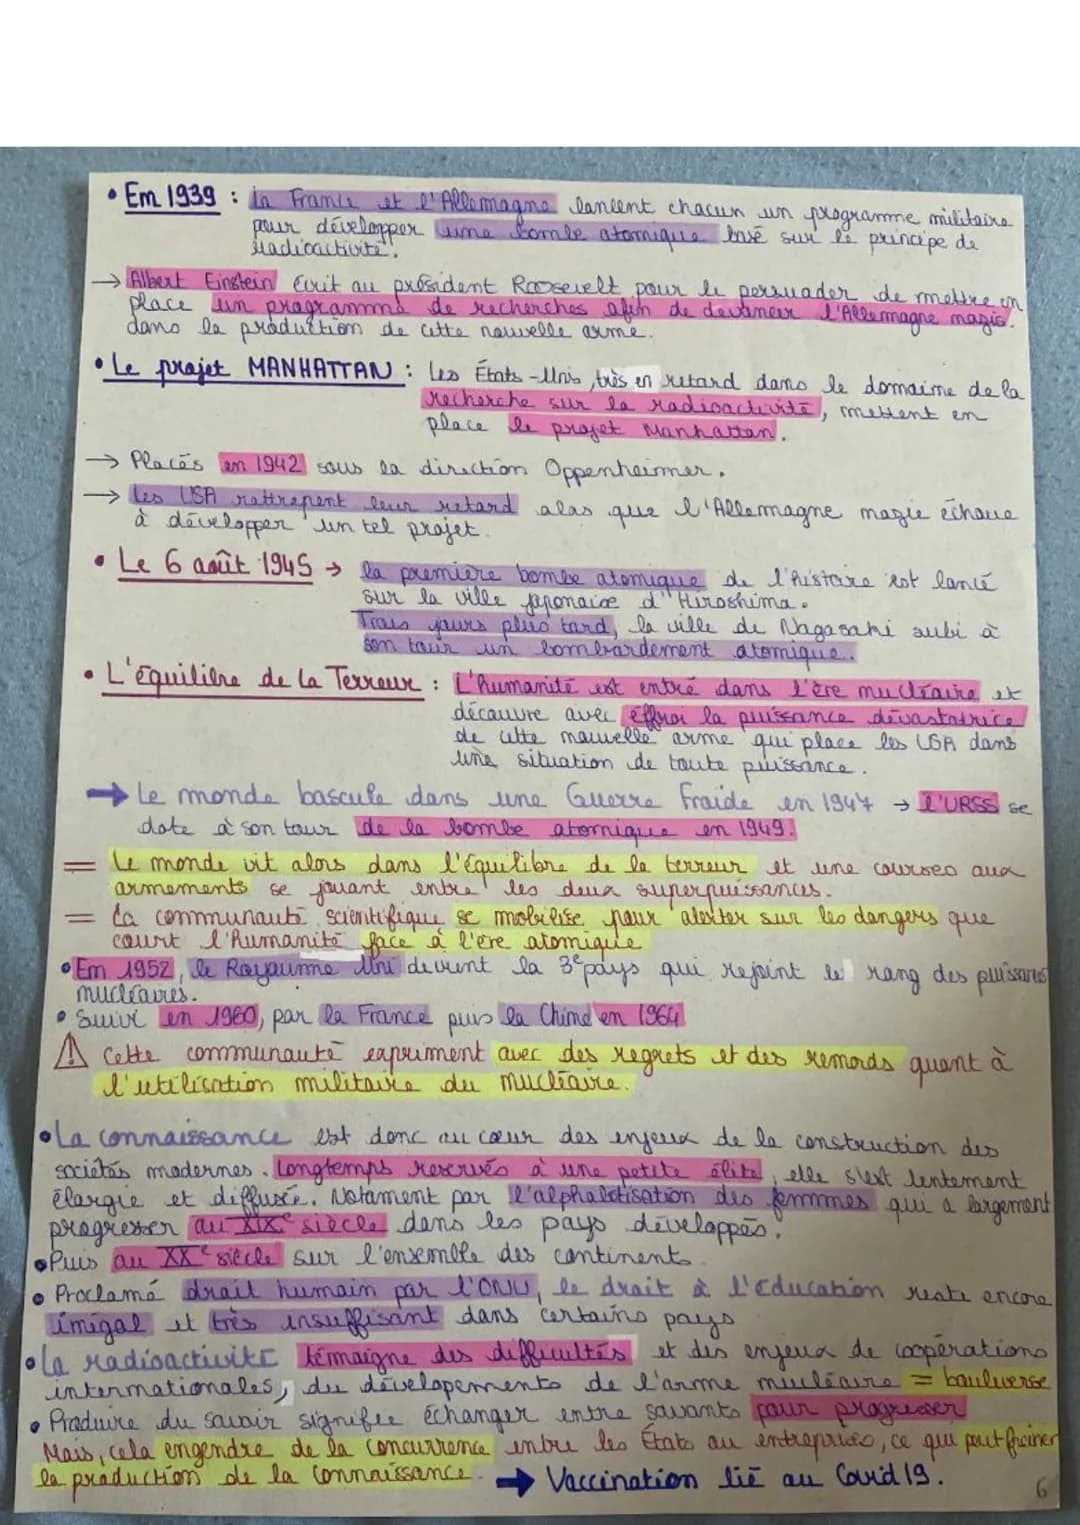 • En 1939 : la France et l'Allemagne lancent chacun un programme militaire
pour développer une bombe atomique basé sur le principe de
radioactivité.
→ Albert Einstein écrit au président Roosevelt pour le persuader de mettre en
place un programme de recherches afin de devancer l'Allemagne nazie.
dans la production de cette nouvelle arme.
• Le projet MANHATTAN : Les États-Unis, très en retard dans le domaine de la
recherche sur la radioactivité, mettent en
place le projet Manhattan.
→ Placés en 1942 sous la direction Oppenheimer.
→ Les USA rattrapent leur retard alos que l'Allemagne nazie échoue
à développer un tel projet.
• Le 6 août 1945 → la première bombe atomique de l'histoire est lancé
sur la ville japonaise d'Hiroshima.
Trois jours plus tard, la ville de Nagasaki subi à
son tour un bombardement atomique.
• L'équilibre de la Terreur : L'humanité est entré dans l'ère nucléaire et
découvre avec effroi la puissance dévastatrice
de cette nouvelle arme qui place les USA dans
une situation de toute puissance.
→ Le monde bascule dans une Guerre Froide en 1947 → l'URSS se
dote à son tour de la bombe atomique en 1949.
= Le monde vit alors dans l'équilibre de la terreur et une courses aux
armements se jouant entre les deux superpuissances.
= La communauté scientifique se mobilise pour alerter sur les dangers que
court l'humanité face à l'ère atomique
• En 1952, le Royaume Uni devient la 3e pays qui rejoint le rang des puissances
nucléaires.
• Suivi en 1960, par la France puis la Chine en 1964
⚠ Cette communauté expriment avec des regrets et des remords quant à
l'utilisation militaire du nucléaire.
• La connaissance est donc au cœur des enjeux de la construction des
sociétés modernes. Longtemps reservés à une petite élite, elle s'est lentement
élargie et diffusée. Notament par l'alphabétisation des femmes qui a largement
progresser au XIXe siècle dans les pays développés.
• Puis au XXe siècle sur l'ensemble des continents.
• Proclamé droit humain par l'ONU, le droit à l'éducation reste encore
inégal et très insuffisant dans certains pays
• La radioactivité témoigne des difficultés et des enjeux de coopérations
internationales, du dévelopements de l'arme nucléaire = bouleverse
• Produire du savoir signifie échanger entre savants pour progresser
Mais, cela engendre de la concurrence entre les États ou entreprises, ce qui peut freiner
la production de la connaissance. → Vaccination lié au Covid 19.
6